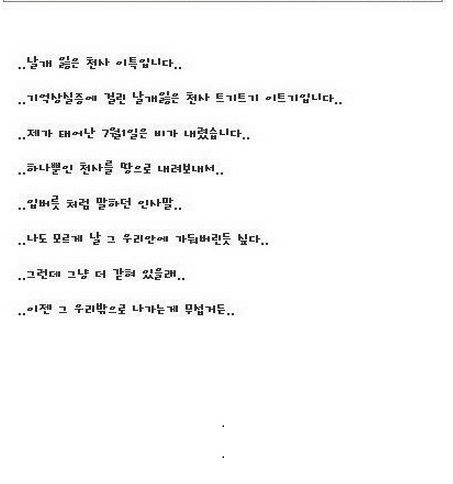 ..날개 잃은 천사 이특입니다..
..기억상실증에 걸린 날개잃은 천사 트기트기 이트기입니다..
..제가 태어난 7월1일은 비가 내렸습니다..
..하나뿐인 천사를 땅으로 내려보내서..
..입버릇 처럼 말하던 인사말..
..나도 모르게 날 그 우리안에 가둬버린듯 싶다..
..그런데 그냥 더 갇혀 있을래..
..이젠 그 우리밖으로 나가는게 무섭거든..
.
.